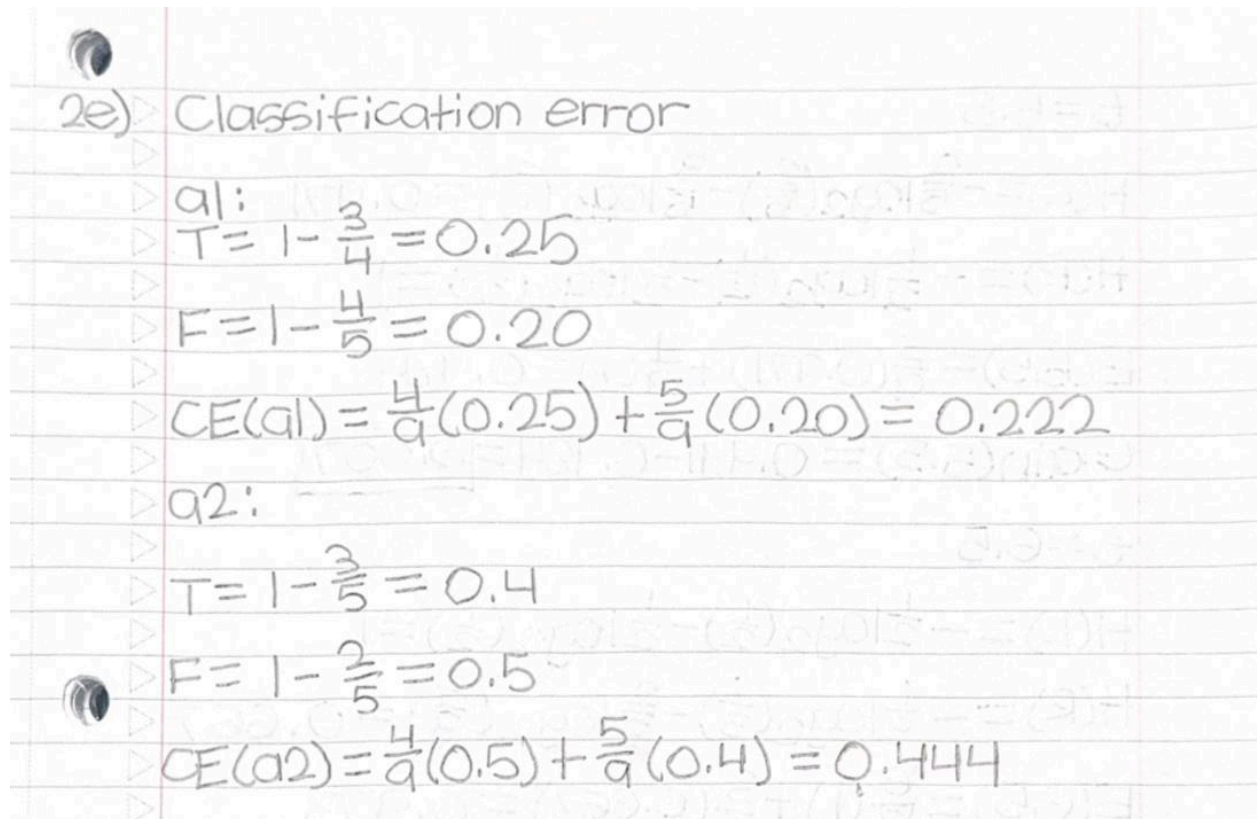 2e) Classification error
a1:
T = 1 - 3/4 = 0.25
F = 1 - 4/5 = 0.20
CE(a1) = 4/9 (0.25) + 5/9 (0.20) = 0.222
a2:
T = 1 - 3/5 = 0.4
F = 1 - 2/5 = 0.5
CE(a2) = 4/9 (0.5) + 5/9 (0.4) = 0.444